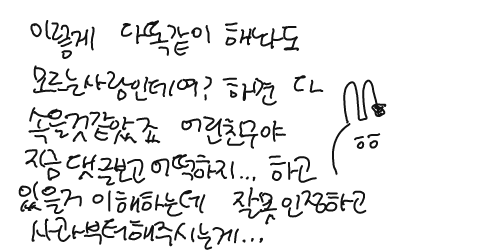 이렇게 다똑같이 해놔도
모르는사람인데여? 하면 다
속을것같았죠 어린친구야
지금 댓글보고 어떡하지... 하고
있을거 이해하는데 잘못인정하고
사과부터해주시는게...